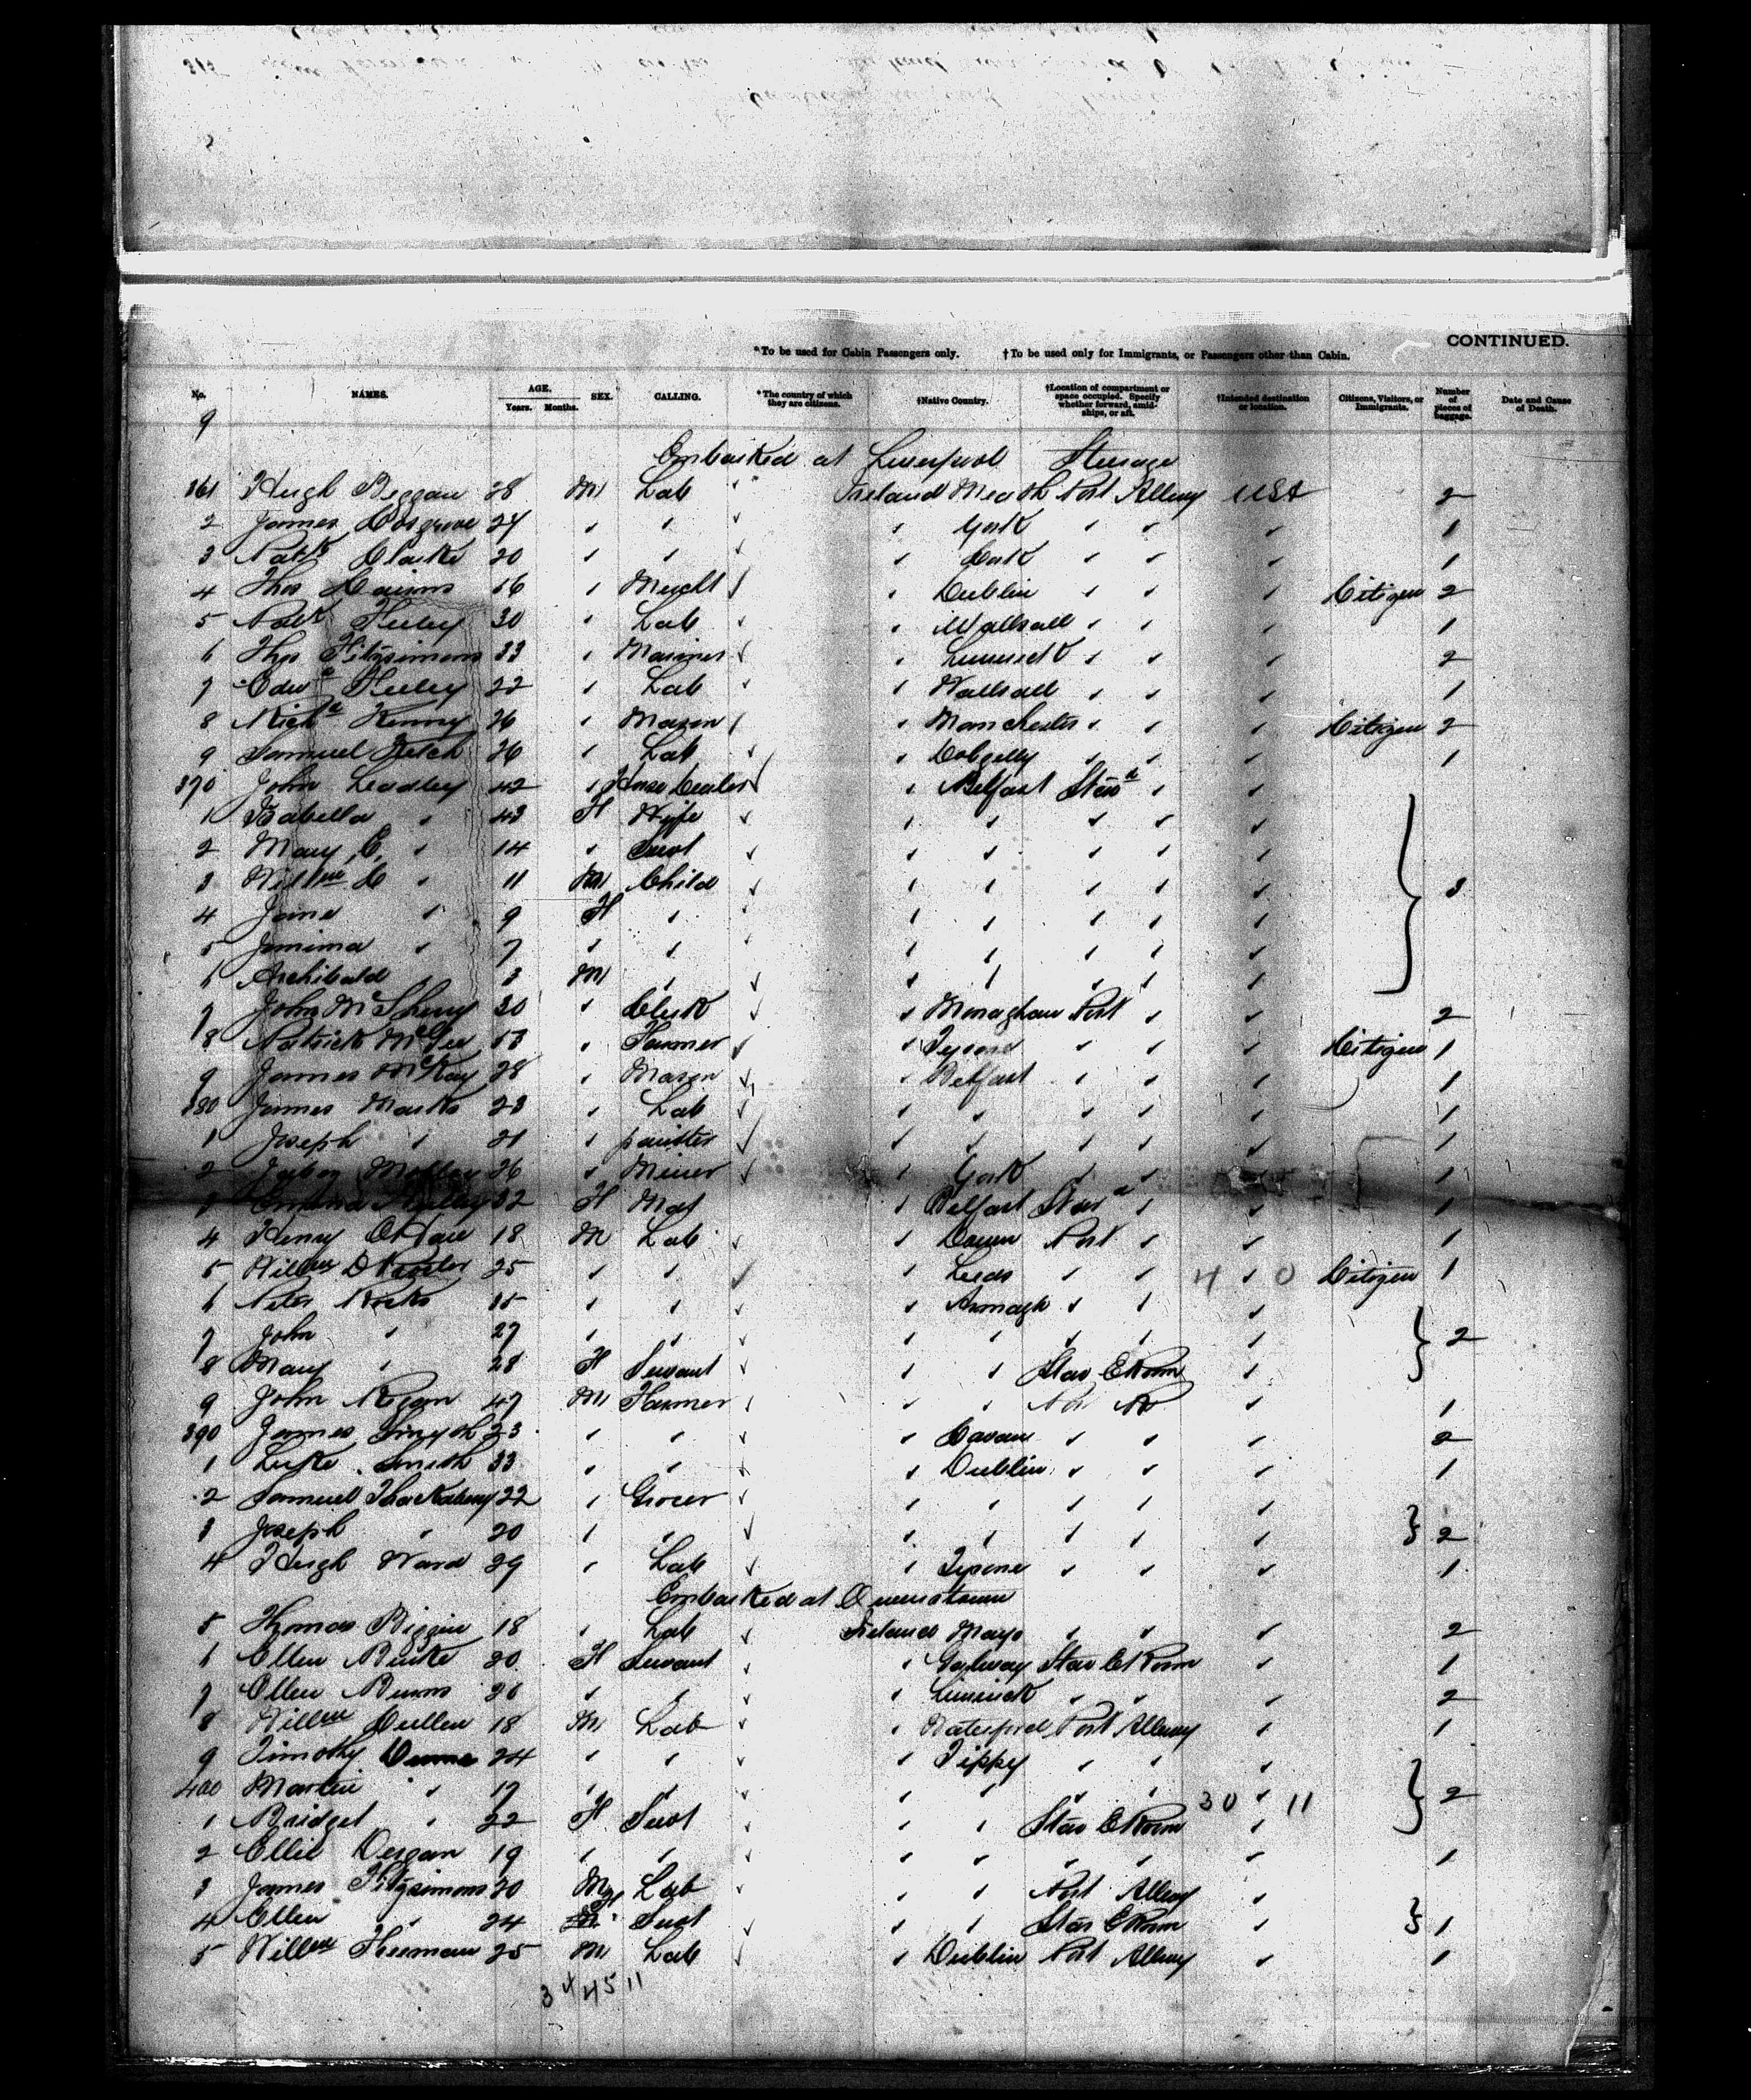 CONTINUED.
*To be used for Cabin Passengers only. †To be used only for Immigrants, or Passengers other than Cabin.
No. NAMES. AGE. Years. Months. SEX. CALLING. *The country of which they are citizens. †Native Country. †Location of compartment or space occupied. Specify whether forward, amidships, or aft. †Intended destination or location. Citizens, Visitors, or Immigrants. Number of pieces of baggage. Date and Cause of Death.
9
Embarked at Liverpool Steerage
361 Hugh Beggan 28 M Lab Ireland Meath Port Allway USA 2
2 James Cosgrove 24 " " " York " " " 1
3 Patk Clarke 20 " " " Cork " " " 1
4 Thos Cairns 56 " Mercht " Dublin " " " Citizen 2
5 Patk Feeley 30 " Lab " Walsall " " " 1
6 Thos Fitzsimons 33 " Mariner " Limerick " " " 2
7 Edwd Feeley 22 " Lab " Walsall " " " 1
8 Richd Kenny 26 " Mason " Manchester " " " Citizen 2
9 Samuel 26 " Lab " Dolgelly " " " 1
370 John Leadley 42 " Horse Dealer " Belfast Starbd " "
1 Isabella " 43 F Wife " " " " "
2 Mary E. " 14 " Servt " " " " "
3 Willm C " 11 M Child " " " " " 8
4 Jane " 9 F " " " " " "
5 Jemima " 7 " " " " " " "
6 Archibald " 3 M " " " " " "
7 John McSherry 30 " Clerk " Monaghan Port " " 2
8 Patrick McGee 53 " Farmer " Tyrone " " " Citizen 1
9 James McKay 28 " Mason " Belfast " " " 1
380 James Marks 23 " Lab " " " " " 1
1 Joseph " 21 " painter " " " " " 1
2 26 " Miner " York " " " 1
3 32 F Mat " Belfast Starbd " " 1
4 Henry O'Hare 18 M Lab " Down Port " " 1
5 Willm 25 " " " Leeds " " 4 " 0 Citizen 1
6 Peter Rocks 35 " " " Armagh " " "
7 John " 27 " " " " " " " 2
8 Mary " 28 F Servant " " Star C Room "
9 John Ryan 47 M Farmer " " " 1
390 James Smyth 23 " " " Cavan " " " 2
1 Luke Smith 33 " " " Dublin " " " 1
2 Samuel Thackaberry 22 " Grocer " " " " "
3 Joseph " 20 " " " " " " " 2
4 Hugh Ward 29 " Lab " Tyrone " " " 1
Embarked at Queenstown
5 Thomas Biggin 18 " Lab Ireland Mayo " " " 2
6 Ellen Burke 20 F Servant " Galway Star C Room " 1
7 Ellen Burns 26 " " " Limerick " " " 2
8 Willm Cullen 18 M Lab " Waterford Port Allway " 1
9 Timothy 24 " " " Tippy " " "
400 Martin " 17 " " " " " " 30 " 11 2
1 Bridget " 22 F Servt " " Star C Room "
2 Ellie Deegan 19 " " " " " " " 1
3 James Fitzsimons 20 M Lab " " Port Allway "
4 Ellen " 24 F Servt " " Star C Room " 1
5 Willm Freeman 25 M Lab " Dublin Port Allway " 1
34 45 11